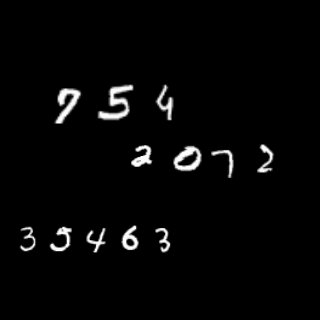 754
2072
35463